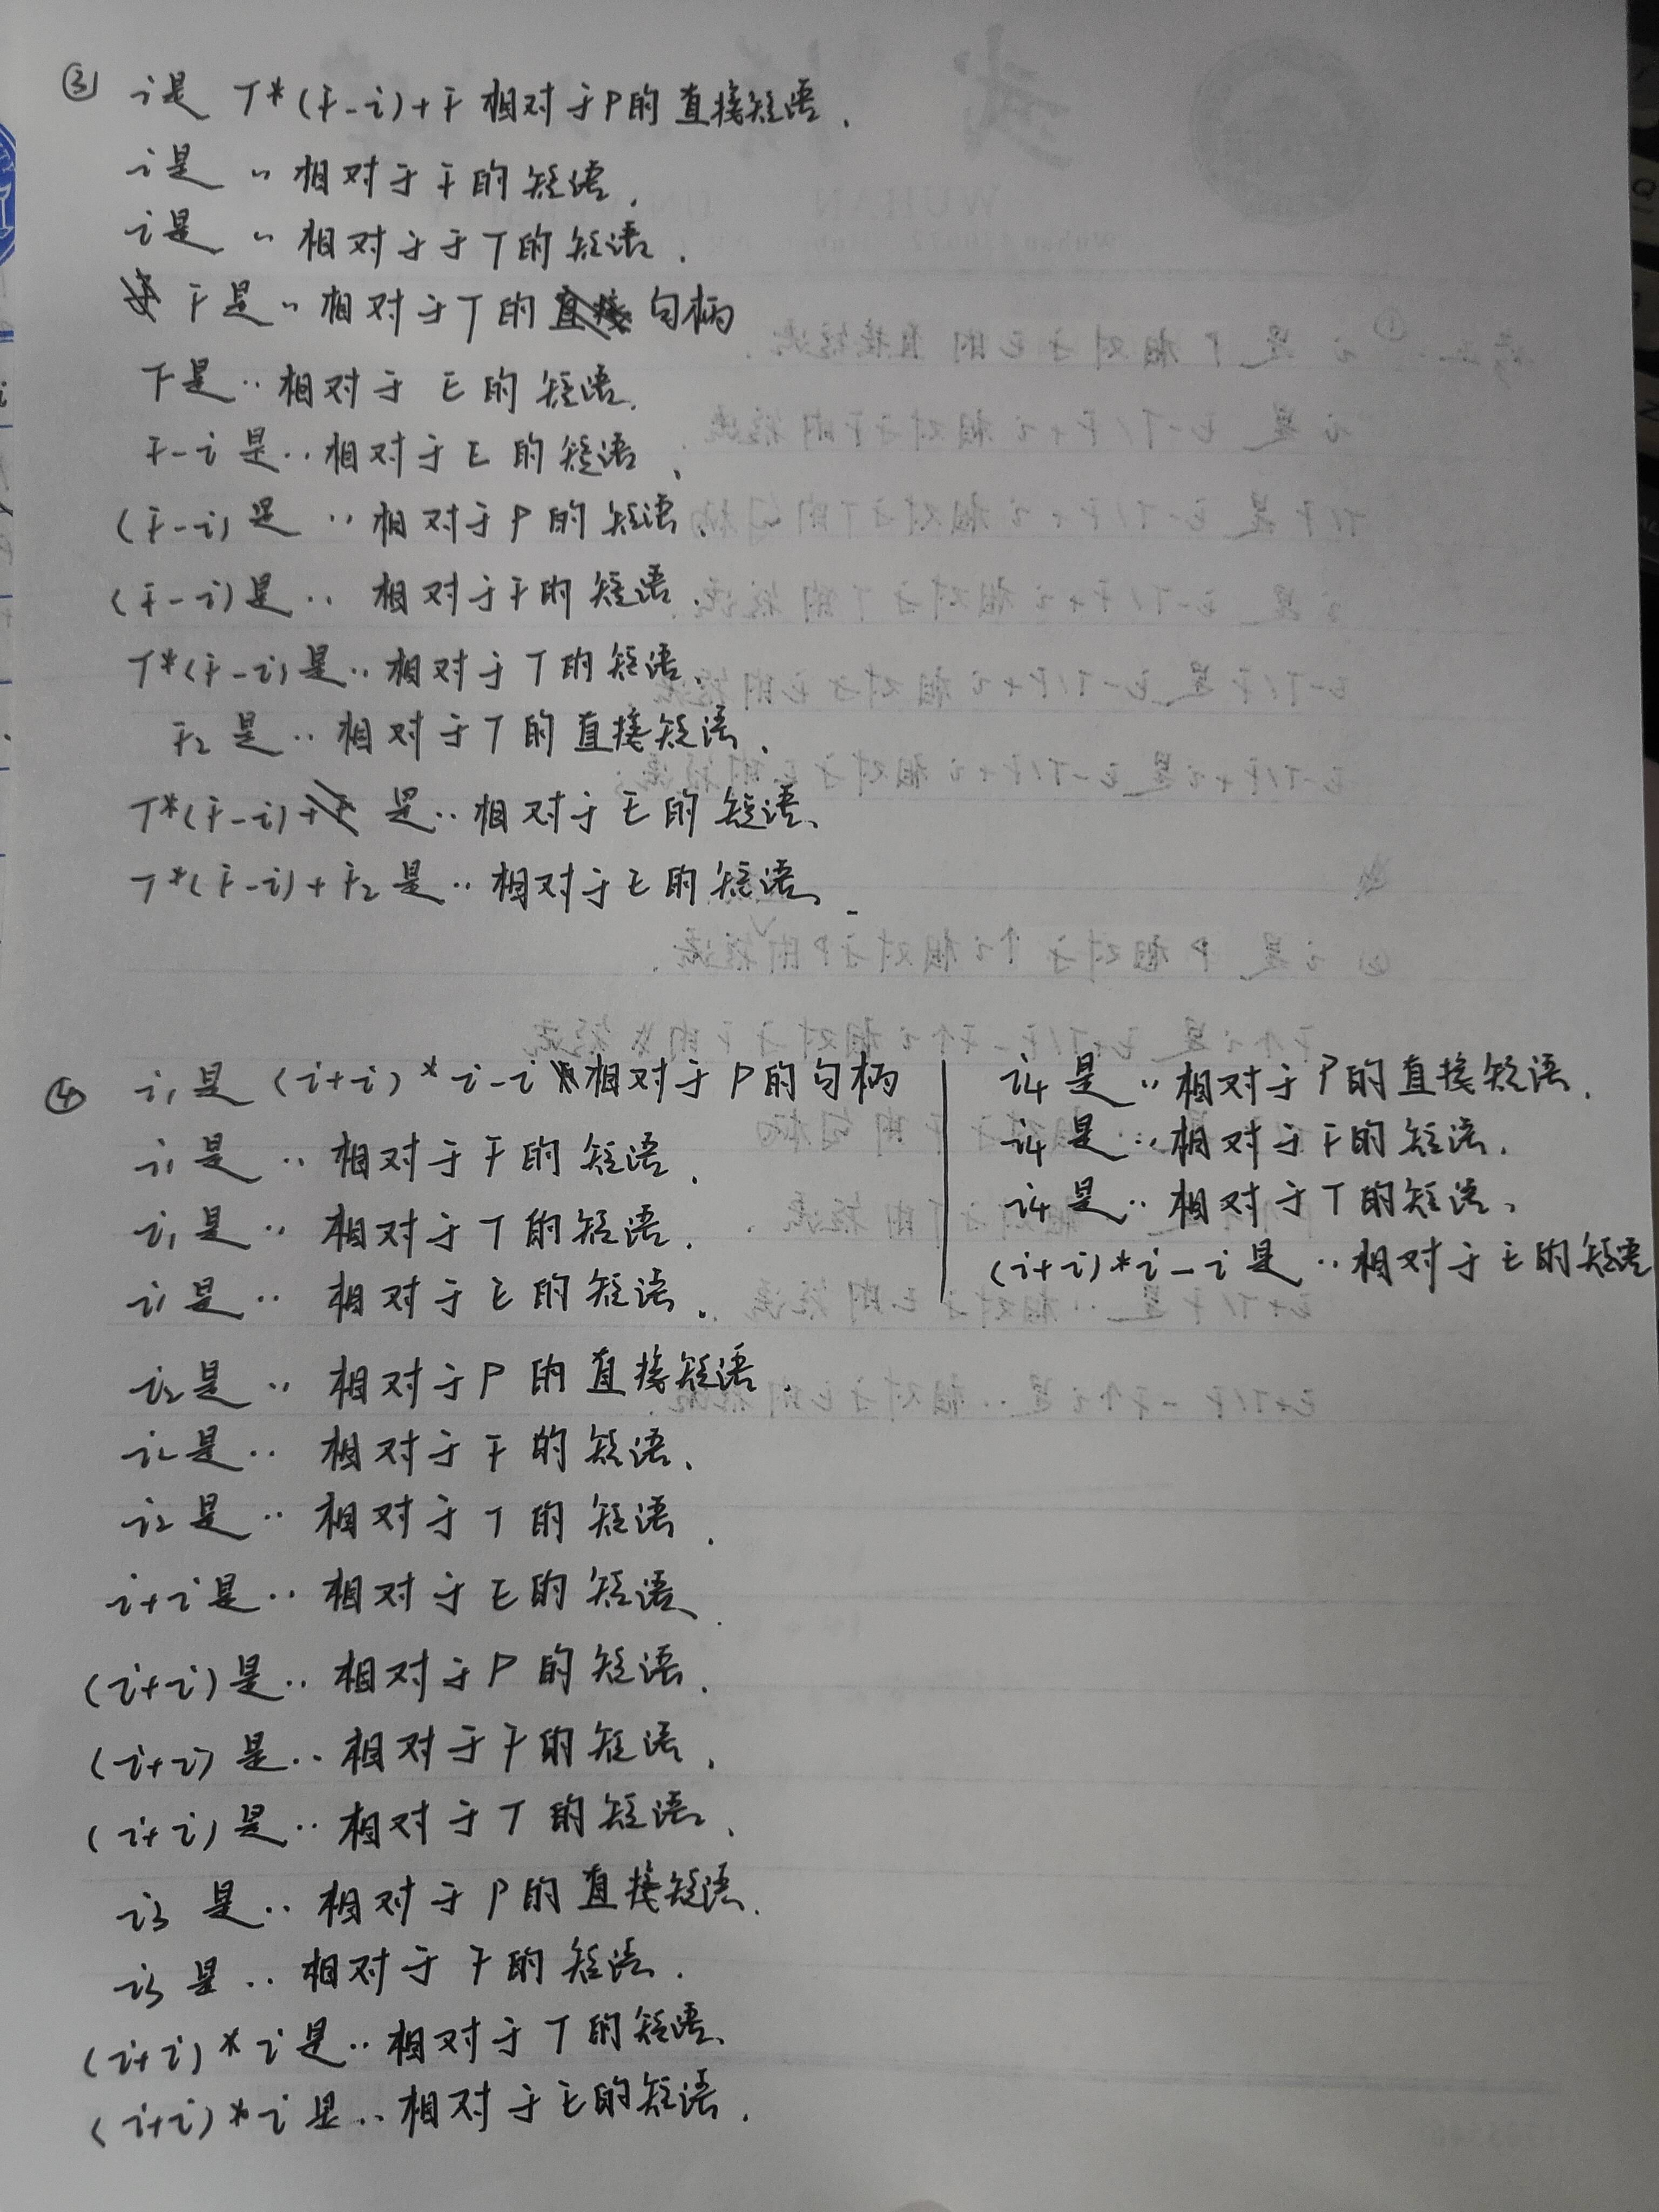 ③ i是 T*(F-i)+F 相对于P的直接短语.
i是 〃相对于F的短语.
i是 〃相对于于T的短语.
F是〃相对于T的句柄
F是〃相对于 E的短语.
F-i是〃相对于E的短语.
(F-i)是〃相对于P的短语.
(F-i)是〃相对于F的短语.
T*(F-i)是〃相对于T的短语.
F2是〃相对于T的直接短语.
T*(F-i)是〃相对于E的短语.
T*(F-i)+F2是〃相对于E的短语.
④ i1是 (i+i)*i-i相对于P的句柄
i1是〃相对于F的短语.
i1是〃相对于T的短语.
i1是〃相对于E的短语.
i2是〃相对于P的直接短语.
i2是〃相对于F的短语.
i2是〃相对于T的短语.
i+i是〃相对于E的短语.
(i+i)是〃相对于P的短语.
(i+i)是〃相对于F的短语.
(i+i)是〃相对于T的短语.
i3是〃相对于P的直接短语.
i3是〃相对于F的短语.
(i+i)*i是〃相对于T的短语.
(i+i)*i是〃相对于E的短语.
i4是〃相对于P的直接短语.
i4是〃相对于F的短语.
i4是〃相对于T的短语.
(i+i)*i-i是〃相对于E的短语